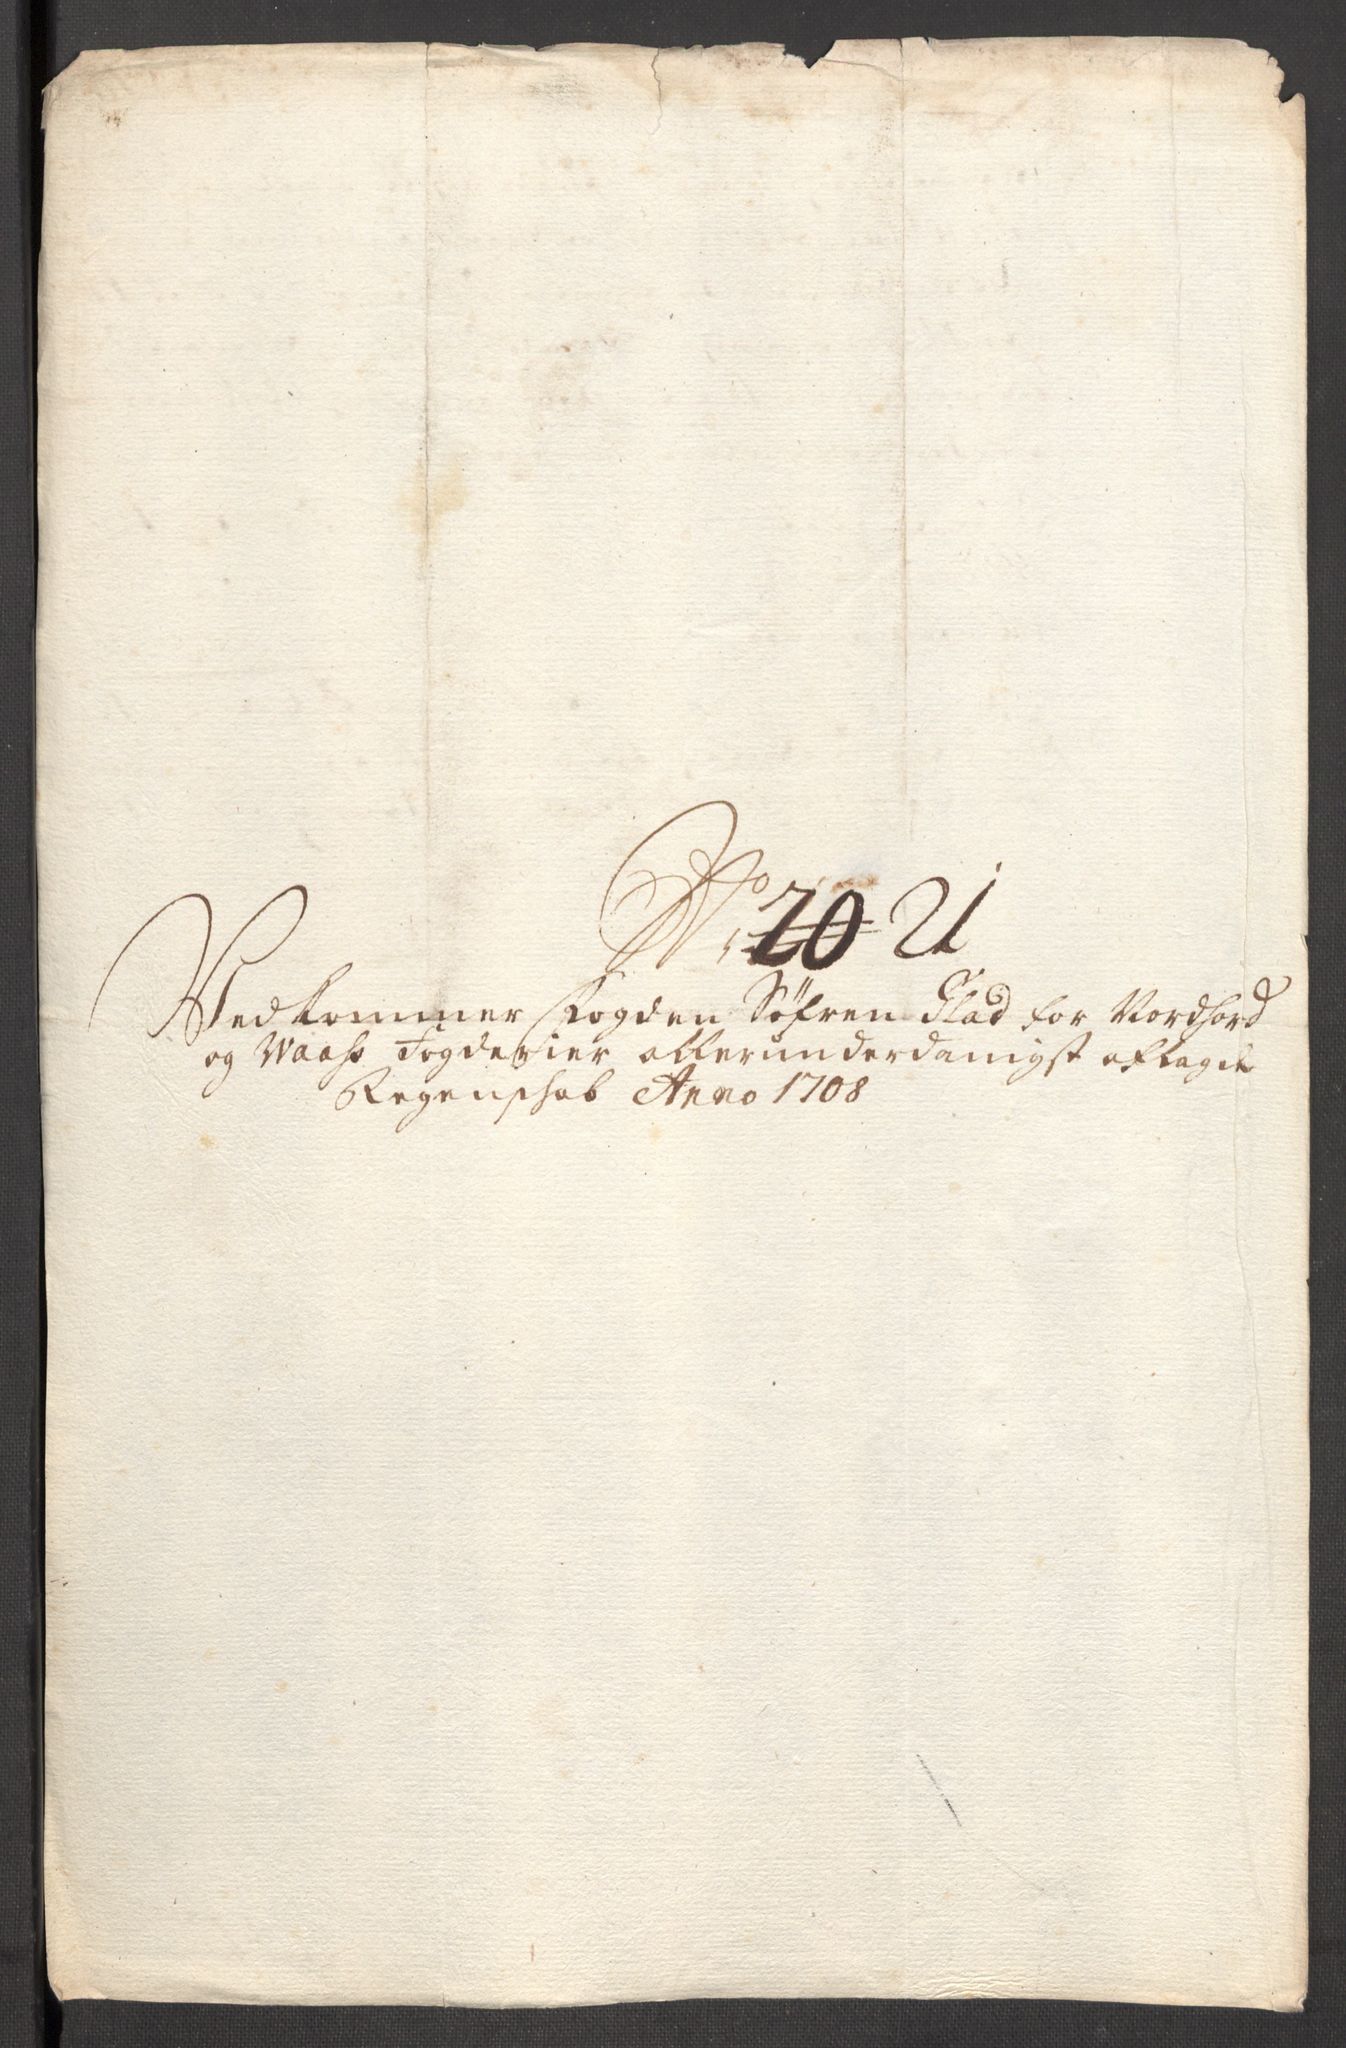 No 20 21
Vedkommer Fogden Søfren Glad for Nordhord
og Waahs Fogderier allerunderdanigst aflagde
Regenschab Anno 1708